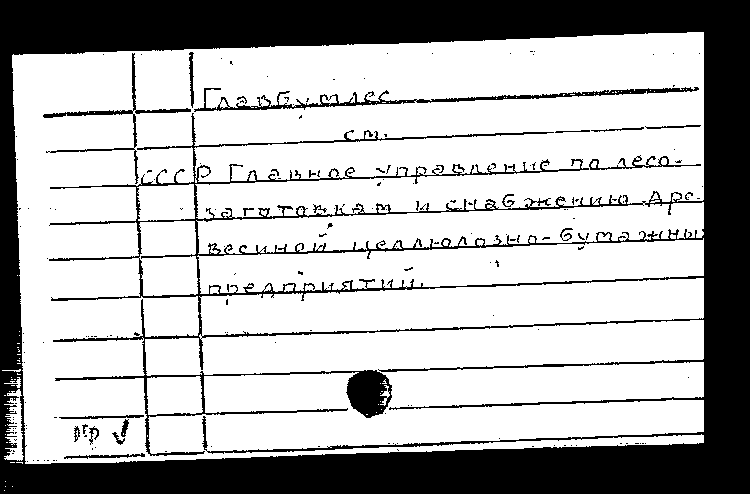 Главбумлес
см.
СССР Главное управление по лесо-
заготовкам и снабжению дре-
весиной целлюлозно-бумажны
предприятий.